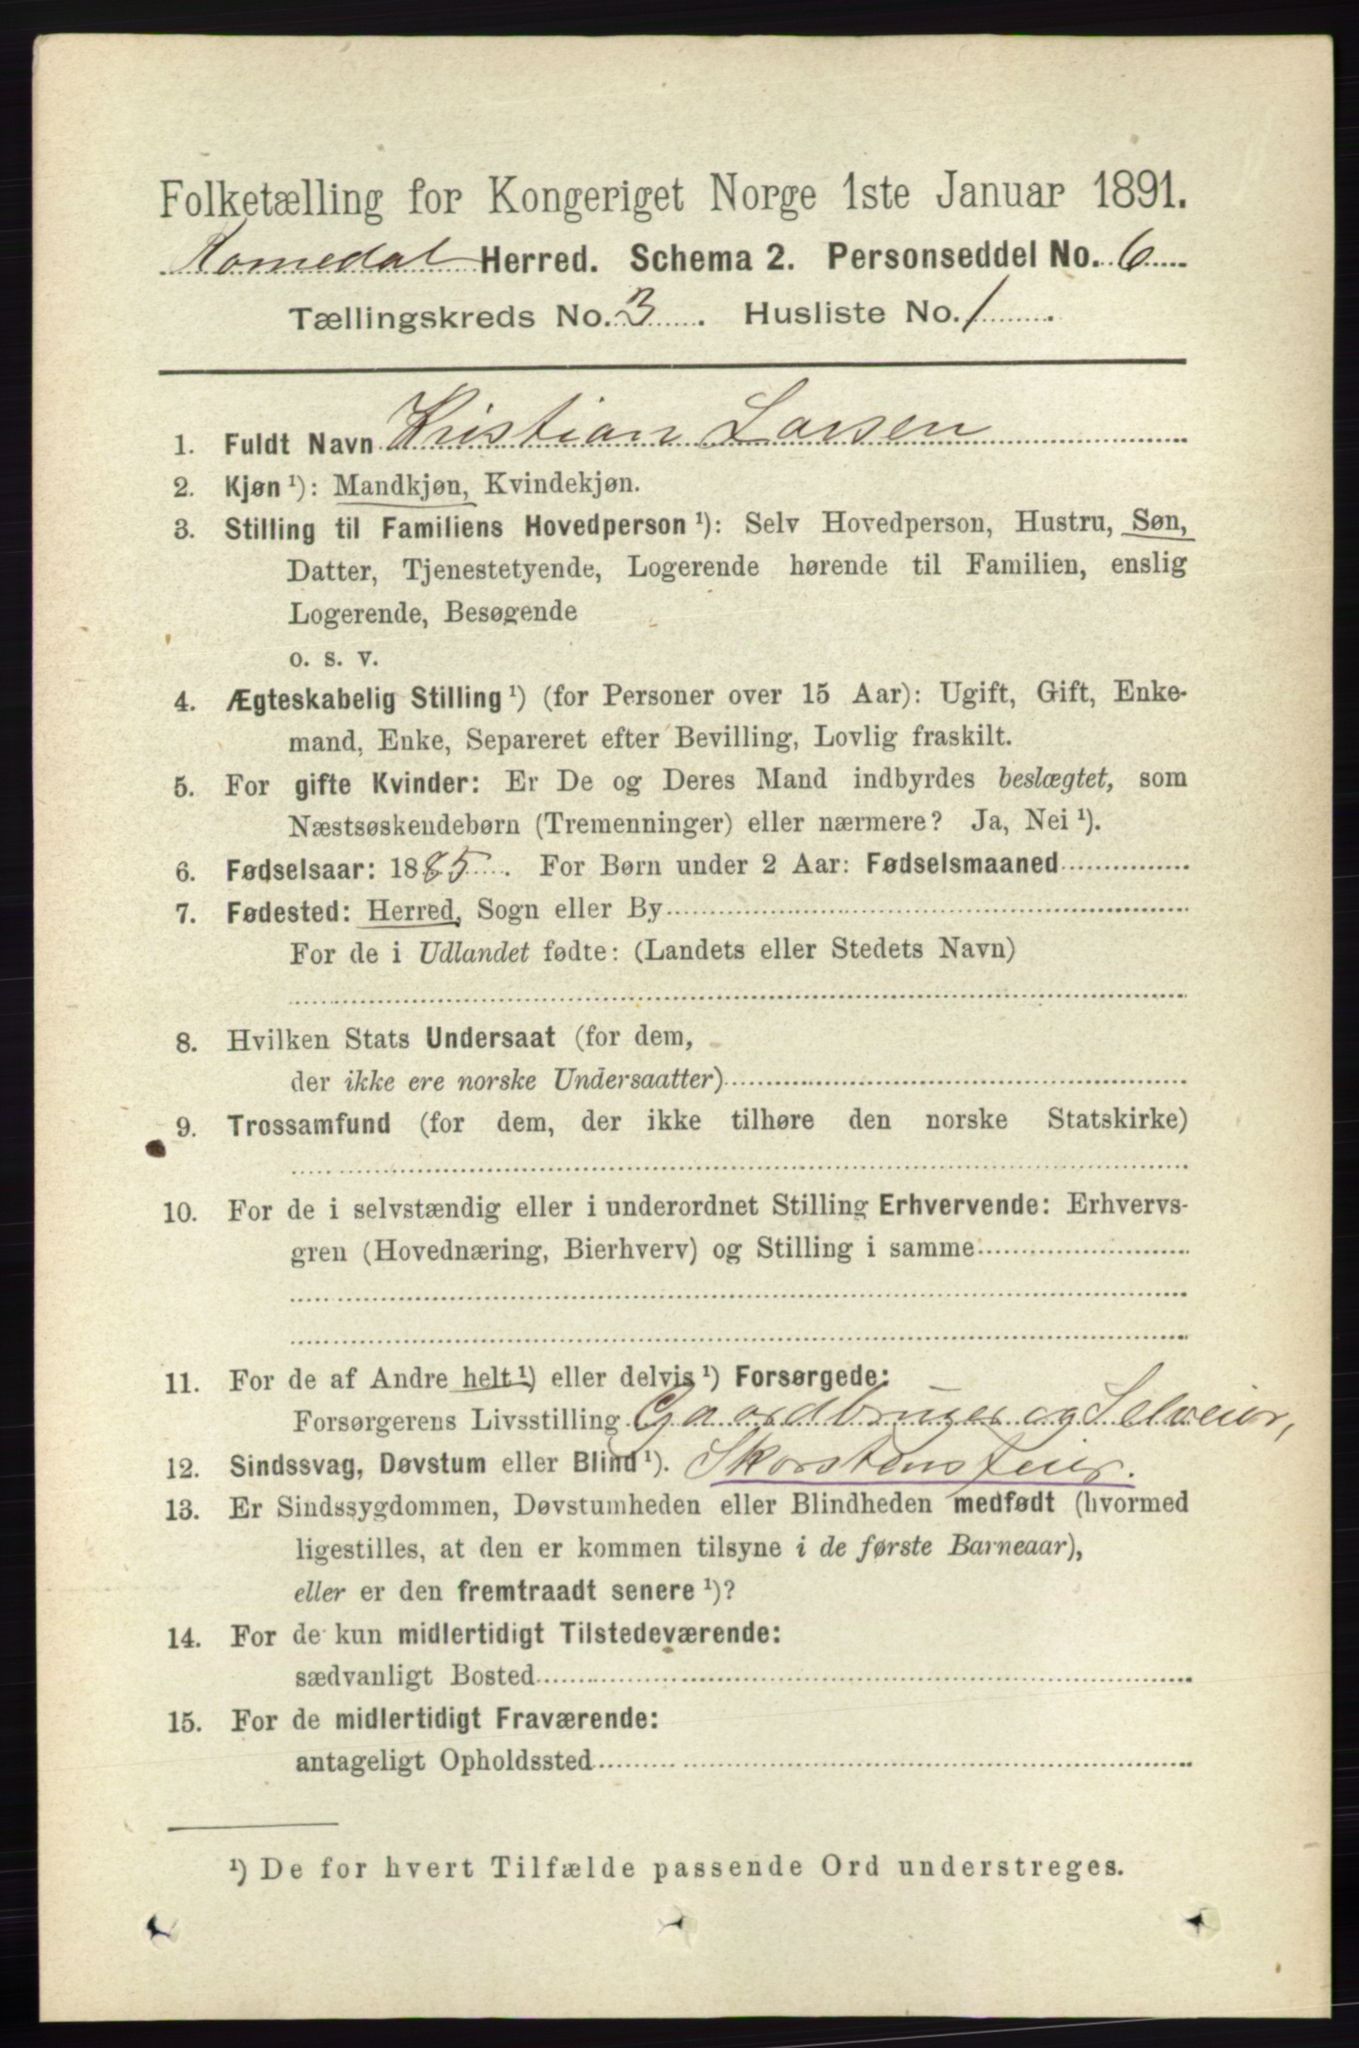 Folketælling for Kongeriget Norge 1ste Januar 1891.
Romedal Herred. Schema 2. Personseddel No. 6
Tællingskreds No. 3. Husliste No. 1.
1. Fuldt Navn Kristian Larsen
2. Kjøn ¹): Mandkjøn, Kvindekjøn.
3. Stilling til Familiens Hovedperson ¹): Selv Hovedperson, Hustru, Søn,
Datter, Tjenestetyende, Logerende hørende til Familien, enslig
Logerende, Besøgende
o. s. v.
4. Ægteskabelig Stilling ¹) (for Personer over 15 Aar): Ugift, Gift, Enke-
mand, Enke, Separeret efter Bevilling, Lovlig fraskilt.
5. For gifte Kvinder: Er De og Deres Mand indbyrdes beslægtet, som
Næstsøskendebørn (Tremenninger) eller nærmere? Ja, Nei ¹).
6. Fødselsaar: 1885. For Børn under 2 Aar: Fødselsmaaned
7. Fødested: Herred, Sogn eller By
For de i Udlandet fødte: (Landets eller Stedets Navn)
8. Hvilken Stats Undersaat (for dem,
der ikke ere norske Undersaatter)
9. Trossamfund (for dem, der ikke tilhøre den norske Statskirke)
10. For de i selvstændig eller i underordnet Stilling Erhvervende: Erhvervs-
gren (Hovednæring, Bierhverv) og Stilling i samme
11. For de af Andre helt ¹) eller delvis ¹) Forsørgede:
Forsørgerens Livsstilling Gaardbruger og Selveier,
12. Sindssvag, Døvstum eller Blind ¹). Skorstensfeier.
13. Er Sindssygdommen, Døvstumheden eller Blindheden medfødt (hvormed
ligestilles, at den er kommen tilsyne i de første Barneaar),
eller er den fremtraadt senere ¹)?
14. For de kun midlertidigt Tilstedeværende:
sædvanligt Bosted
15. For de midlertidigt Fraværende:
antageligt Opholdssted
¹) De for hvert Tilfælde passende Ord understreges.